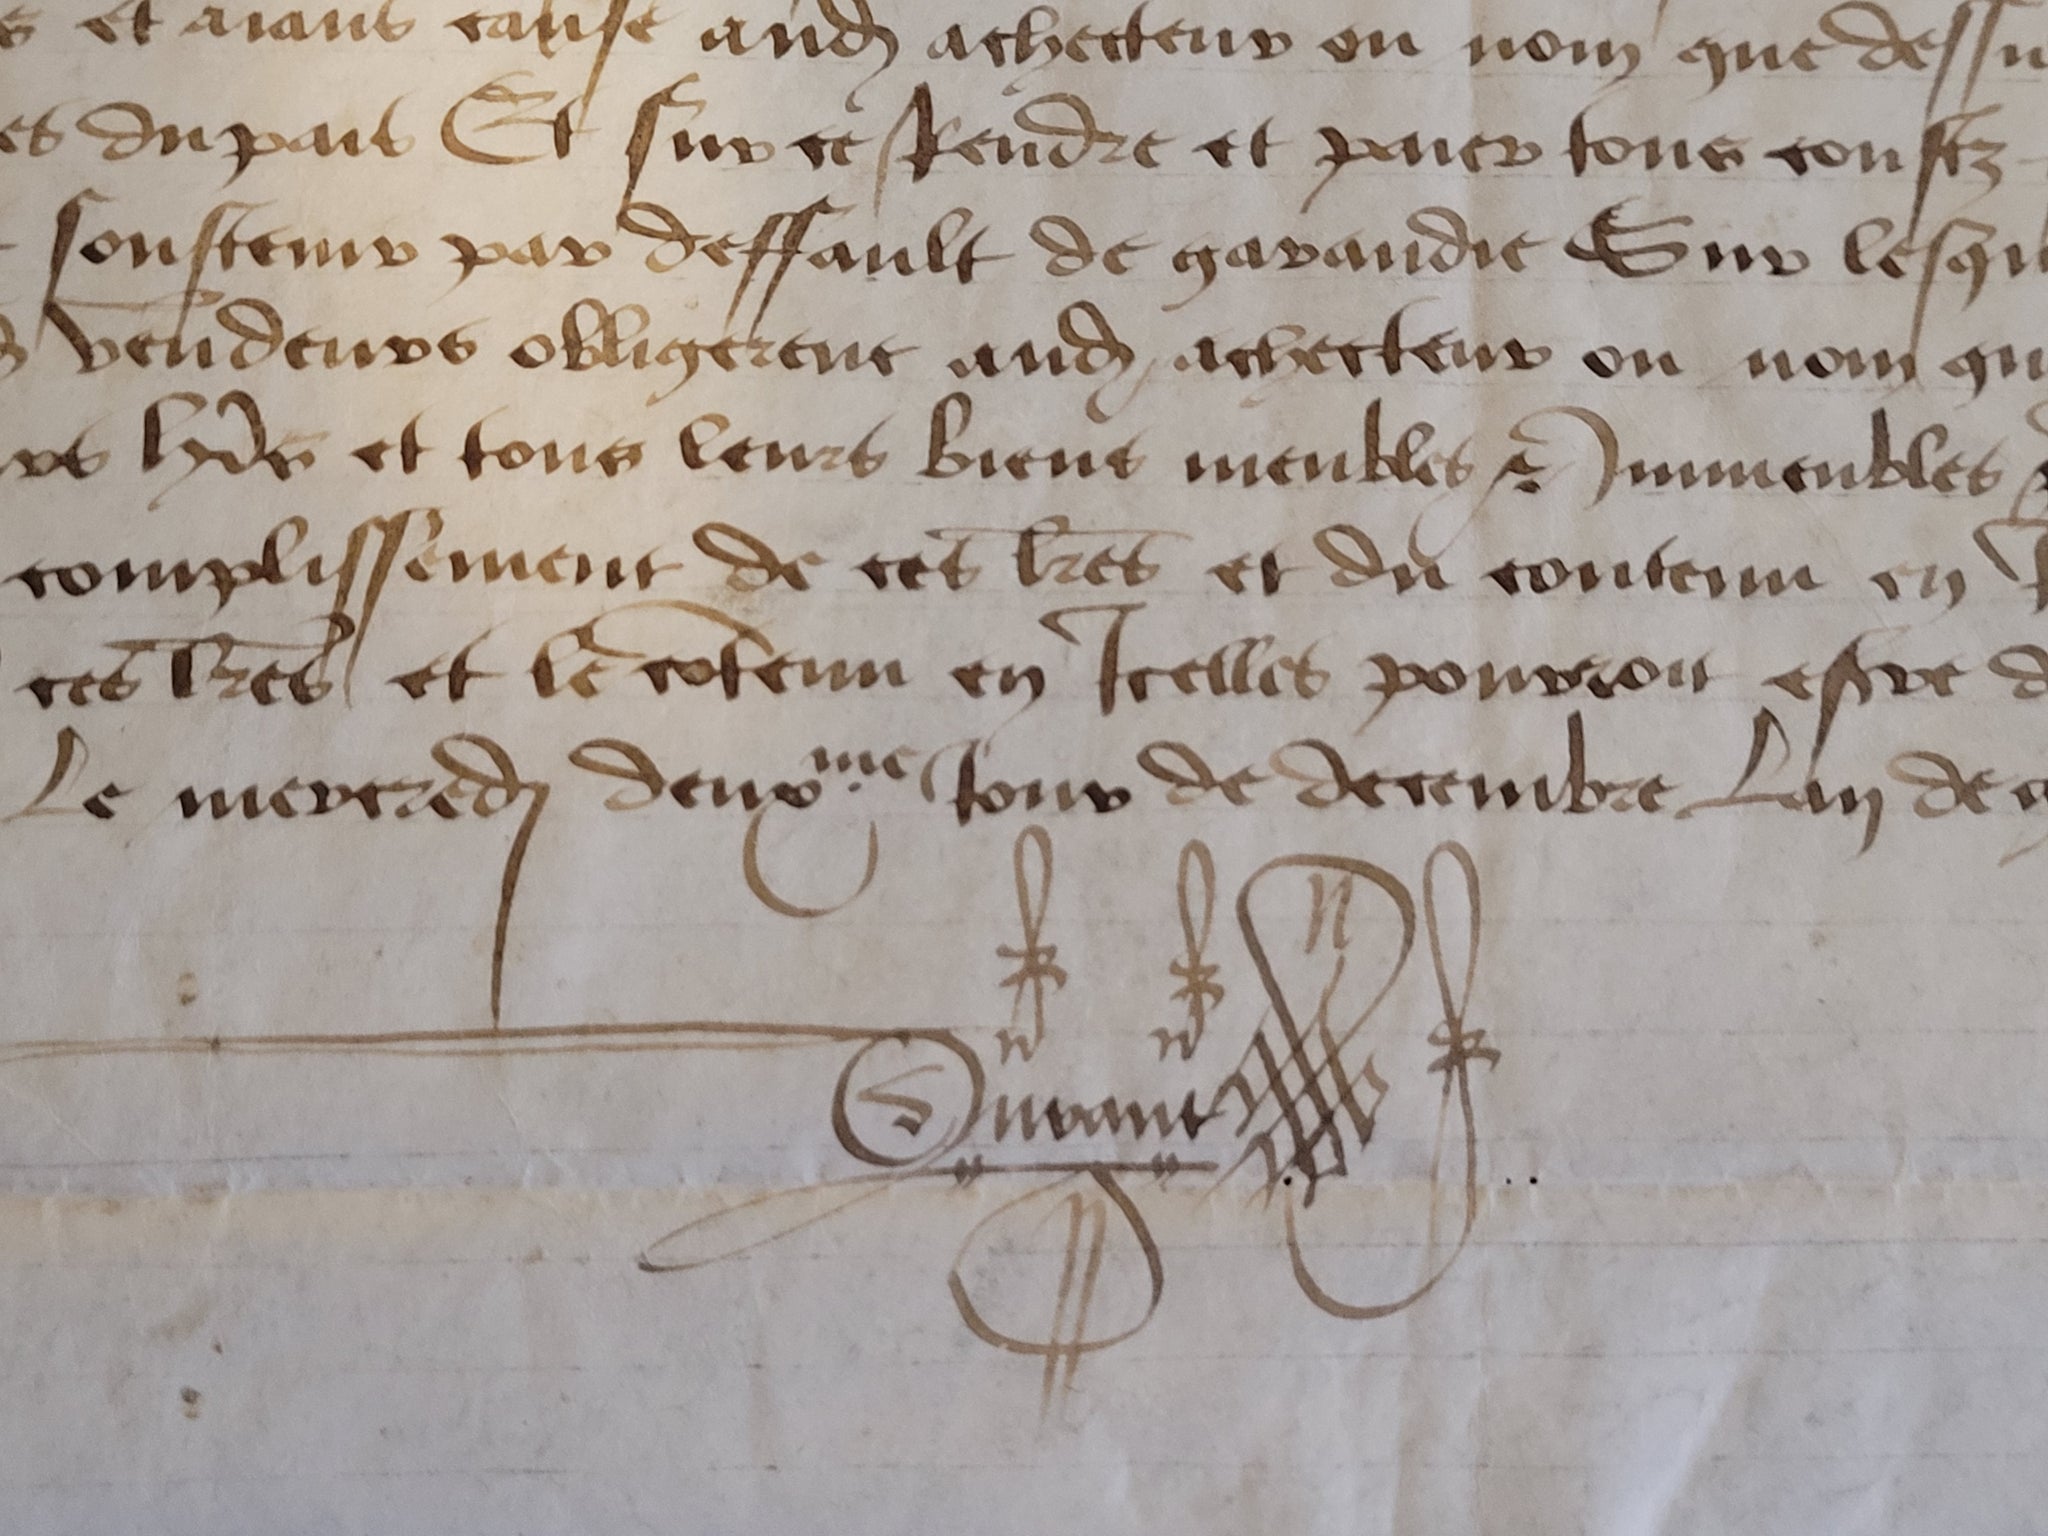 s et aians cause aud achecteur ou nom que dessu
es du pais Et sur ce Rendre et paier tous coustz
soustenir par deffault de garandie Sur lesqu
vendeurs obligerent aud achecteur ou nom qu
urs hers et tous leurs biens meubles & Immeubles
complissement de ces lres et du contenu en
ces lres et le cotenu en Icelles pourront estre d
Le mercredi deuxme Jour de decembre Lan de g
Durant